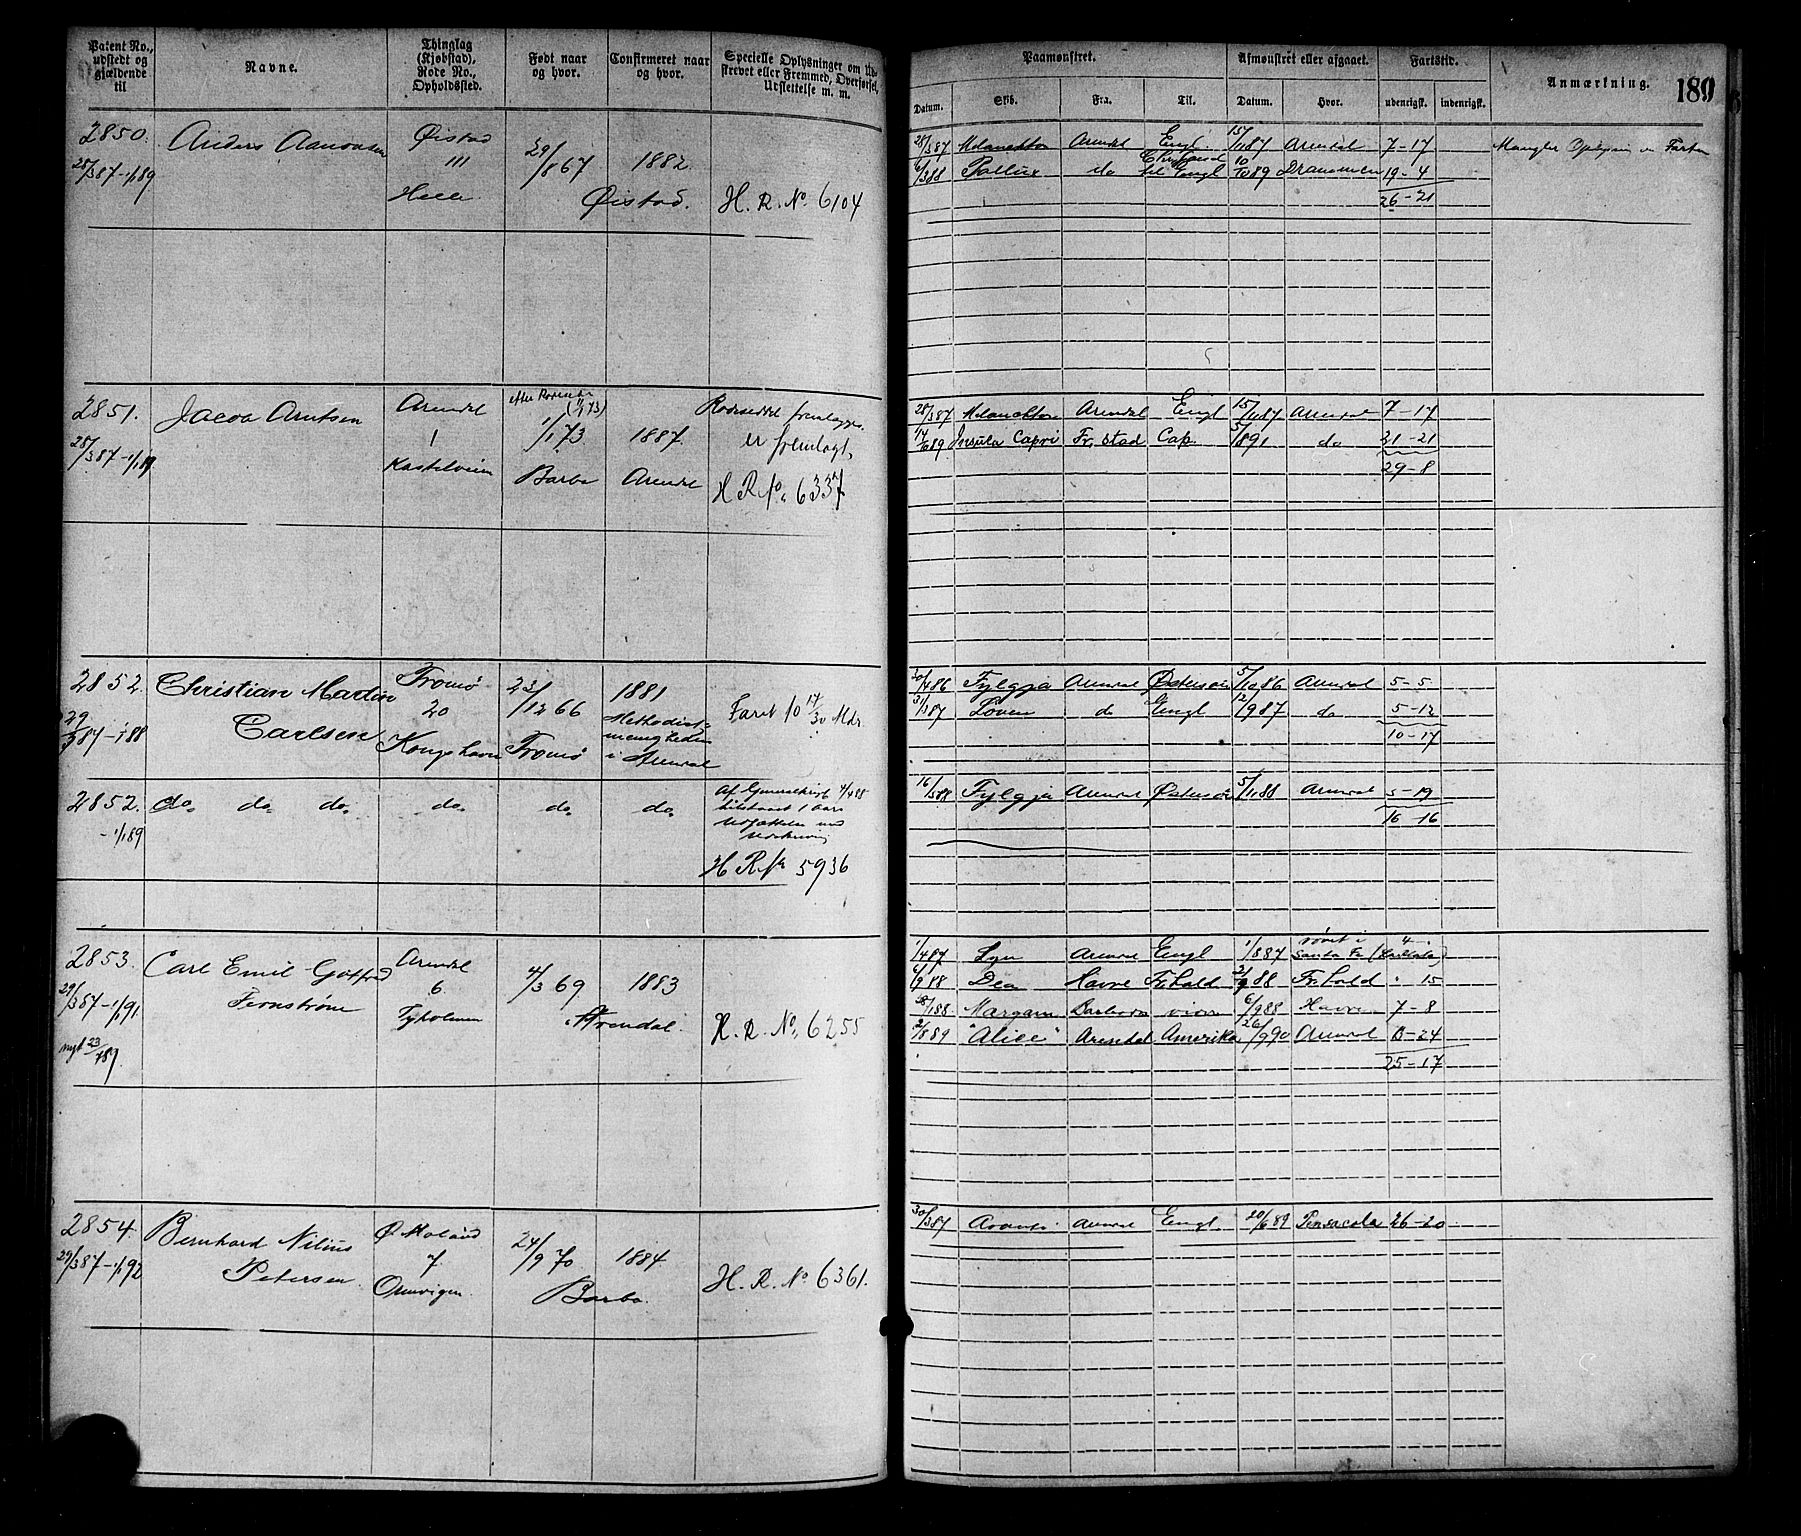 Patent No., udstedt og gjældende til
Navne.
Thinglag (Kjøbstad), Rode No., Opholdssted.
Født naar og hvor.
Confirmeret naar og hvor.
Specielle Oplysninger om Udskrevet eller Fremmed, Overførsel, Udslettelse m. m.
Paamønstret.
Datum.
Skib.
Fra.
Til.
Afmønstret eller afgaaet.
Datum.
Hvor.
Fartstid.
udenrigsk.
indenrigsk.
Anmærkning.
189
2850. Anders Aanonsen Øistad 29/8 67 1882.
28/3 87 - 1/1 89 III
Øistad. H. R. No. 6104
28/3 87 Melanchton Arendal Engl. 15/11 87 Arendal 7-17 Mangler
6/3 88 Pollux do til Engl 10/10 89 Drammen 19-4
26-21
2851. Jacob Arntsen Arendal 1/1 73 1887.
28/3 87 - 1/1 89 1 er fremlagt,
Barbo Arendal H R No. 6337
28/3 87 Melanchton Arendal Engl 15/11 87 Arendal 7-17
17/6 89 Insula Capri Fr. stad Cap. 5/1 891 do 21-21
29-8
2852. Christian Martin Tromø 23/12 66 1881 Faret 10 17/30 Mdr.
29/3 87 - 1/1 88 Carlsen 20 Methodist-
menigheden
Kongshavn Tromø i Arendal
30/4 86 Fylgja Arendal Østersøen 5/10 86 Arendal 5-5
31/3 87 Loven do Engl 12/9 87 do 5-12
10-17
2852. do. do. do. do. do. do.
- 1/1 89
H R No 5936
16/5 88 Fylgja Arendal Østersøen 5/11 88 Arendal 5-19
16-16
2853. Carl Emil Gotfred Arendal 4/3 69 1883
29/3 87 - 1/1 91 Fernstrøm 6.
Tyholmen Arendal. H. R. No. 6255
nyt 23/7 89.
1/4 87 Arendal Engl 1/8 87 rømt i Santa Fe
Dea Havre Fr.hald 88 Fr.hald 15
Margam Barbados 6/9 88 Havre 7-8
2/8 89 "Alice" Arendal Amerika 26/9 90 Arendal 8-24
25-17
2854. Bernhard Nilius Ø Moland 24/9 70 1884
29/3 87 - 1/1 92 Petersen 7
Barbo. H. R. No. 6361.
30/3 87 Arendal Engl. 20/6 89 Pensacola 26-20